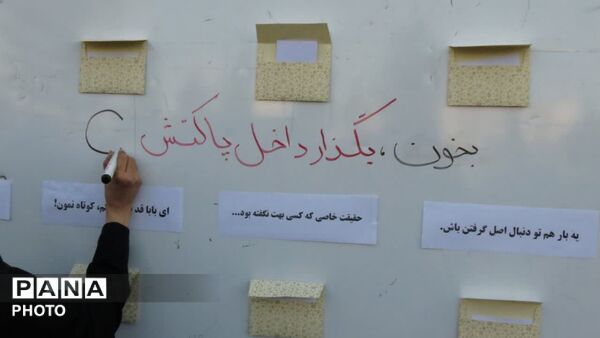 بخون، بگذار داخل پاکتش
یه بار هم تو دنبال اصل گرفتن باش.
حقیقت خاصی که کسی بهت نگفته بود...
ای بابا قد کوتاه نمون!
PANA
PHOTO